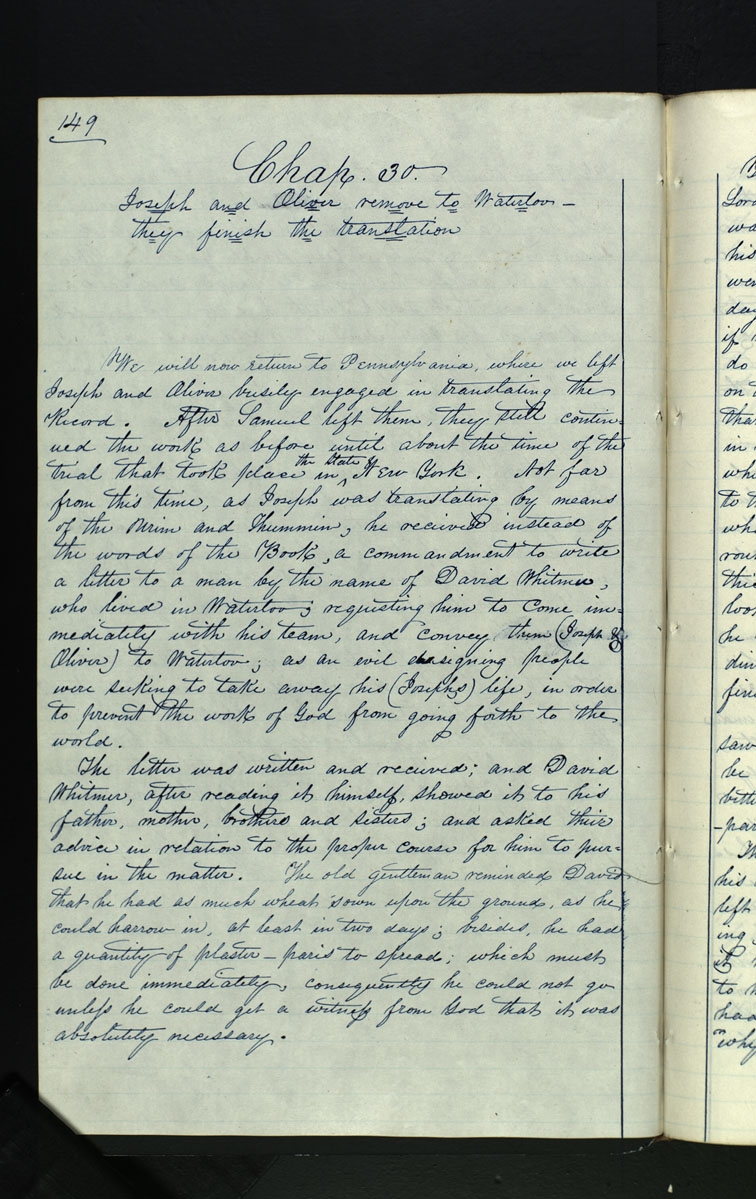 149
Chap. 30.
Joseph and Oliver remove to Waterloo —
they finish the translation
We will now return to Pennsylvania, where we left
Joseph and Oliver busily engaged in translating the
Record. After Samuel left them, they still contin-
ued the work as before until about the time of the
trial that took place in the State of New York. Not far
from this time, as Joseph was translating by means
of the Urim and Thummim, he recieved instead of
the words of the Book, a commandment to write
a letter to a man by the name of David Whitmer,
who lived in Waterloo; requesting him to come im-
mediately with his team, and convey them (Joseph &
Oliver) to Waterloo; as an evil designing people
were seeking to take away his (Josephs) life, in order
to prevent the work of God from going forth to the
world.
The letter was written and recieved; and David
Whitmer, after reading it himself, showed it to his
father, mother, brothers and sisters; and asked their
advice in relation to the proper course for him to pur-
sue in the matter. The old gentleman reminded David
that he had as much wheat sown upon the ground, as he
could harrow in, at least in two days; besides, he had
a quantity of plaster-paris to spread; which must
be done immediately, consequently he could not go
unless he could get a witness from God that it was
absolutely necessary.